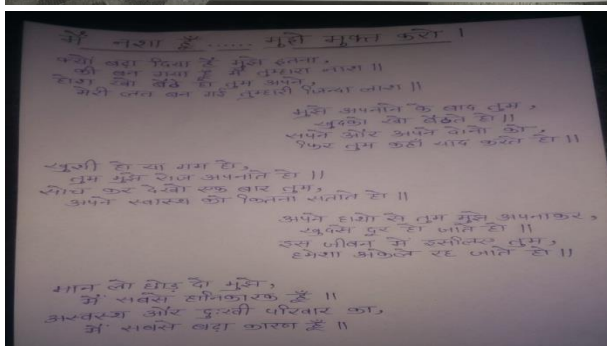 मैं नशा हूँ ...... मुझे मुक्त करो ।
क्यों बढ़ा दिया है मुझे इतना,
की बन गया हूँ मैं तुम्हारा नाश ॥
होश खो बैठे हो तुम अपने,
मेरी लत बन गई तुम्हारी जिन्दा लाश ॥
मुझे अपनाने के बाद तुम,
खुदको खो बैठते हो ॥
सपने और अपने दोनो को,
फिर तुम कहाँ याद करते हो ॥
खुशी हो या गम हो,
तुम मुझे रोज अपनाते हो ॥
सोच कर देखो एक बार तुम,
अपने स्वास्थ को कितना सताते हो ॥
अपने हाथो से तुम मुझे अपनाकर,
खुदसे दूर हो जाते हो ॥
इस जीवन में इसलिए तुम,
हमेशा अकेले रह जाते हो ॥
मान लो छोड़ दो मुझे,
मैं सबसे हानिकारक हूँ ॥
अस्वस्थ और दुःखी परिवार का,
मैं सबसे बड़ा कारण हूँ ॥